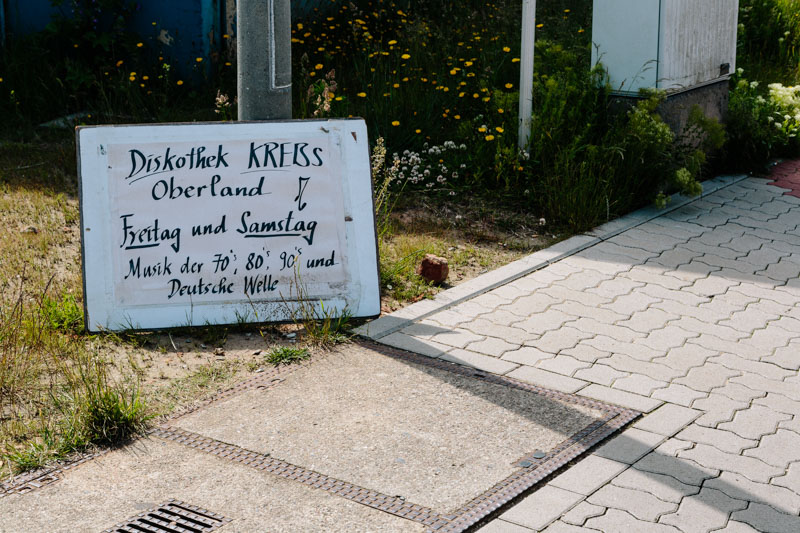 Diskothek KREBS
Oberland !
Freitag und Samstag
Musik der 70's, 80's 90's und
Deutsche Welle